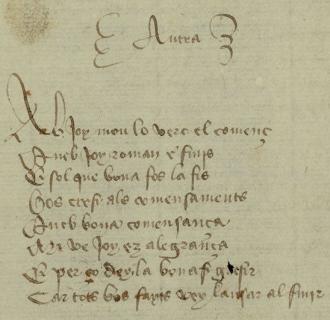 Autra
Ab Joy mou lo vers el començ
Aneb Joy roman e finis
E sol que bona fos la fis
Bos cresi als comensaments
Aneb bona comensança
Mi ve Joy ez alegrança
E per ço dey la bona fi grasir
Car totz bos fayts vey lausar al finir